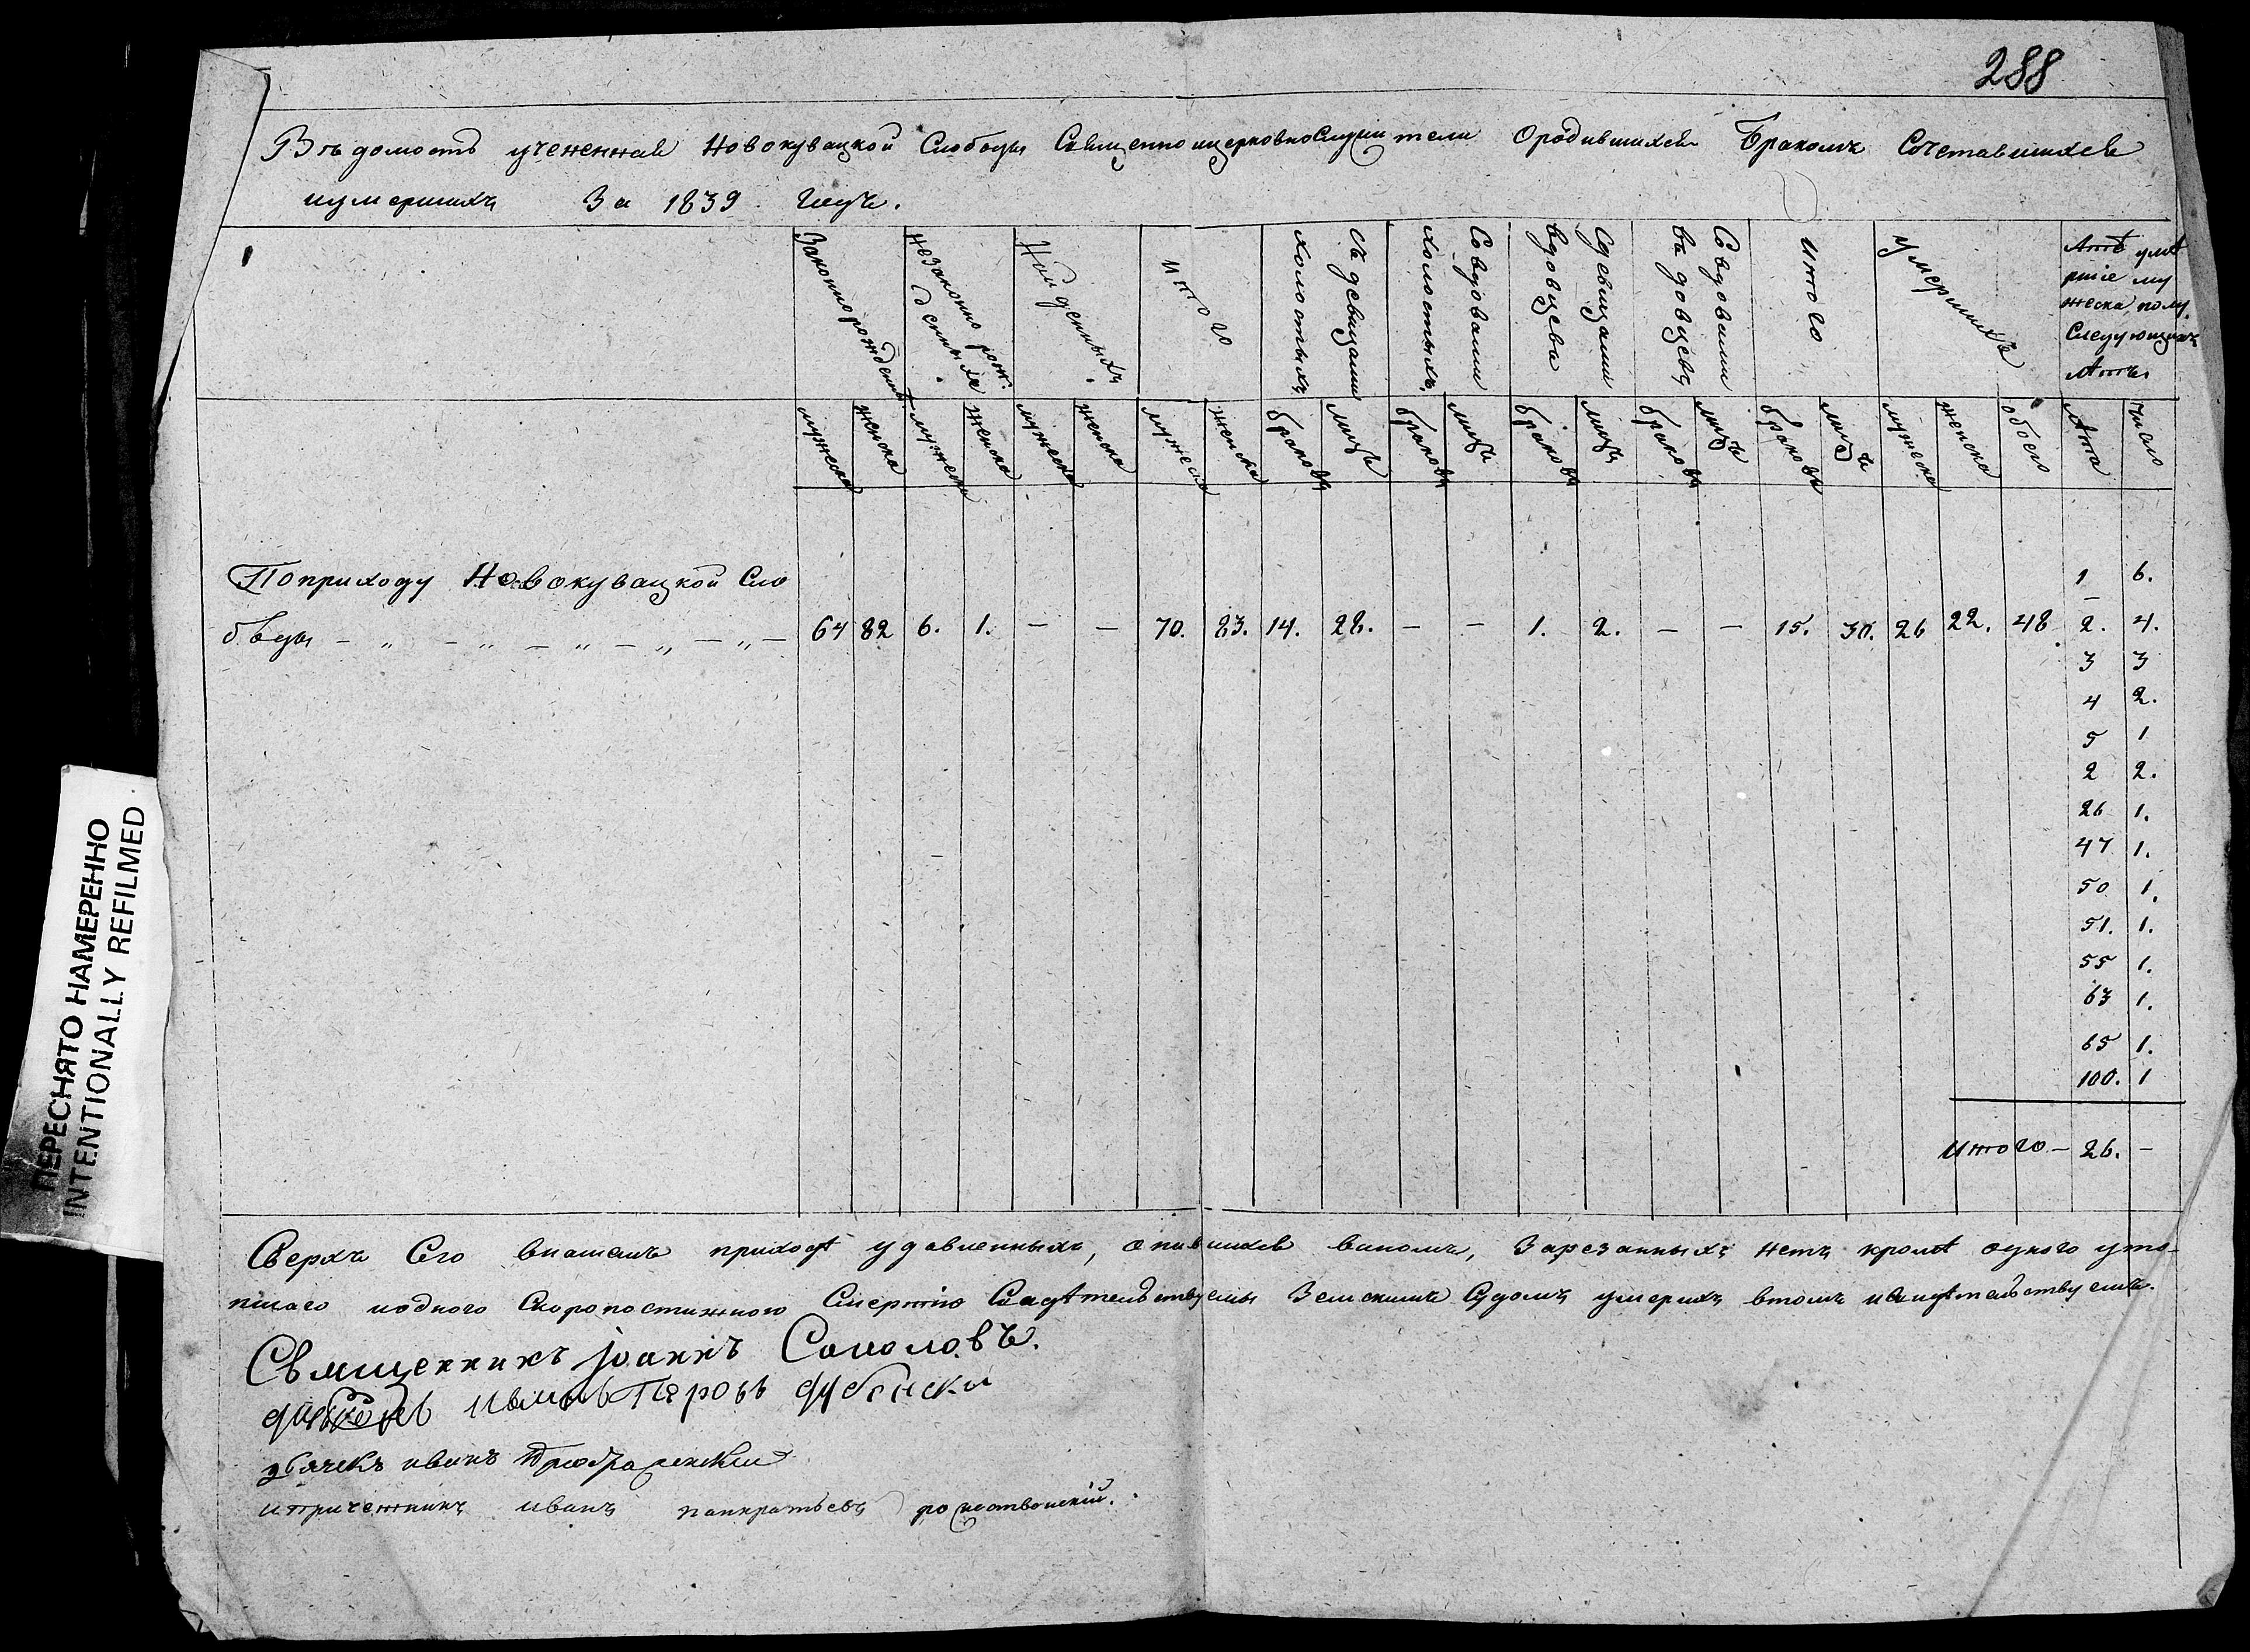 288
Вѣдомость учененная Новокувацкой Слободы Священноицерковнослужители Ородившихся Бракомъ Сочетавшихся
иумершихъ За 1839 годъ.
Законнорожденныхъ
незаконно рож
денныхъ
Найденныхъ
итого
съ девицами
холостыхъ
Совдовами
холостыхъ
Сдевицами
вдовцевъ
Совдовами
вдовцевъ
итого
умершихъ
Лѣтъ умѣ
ршіе му
жеска полу
Следующихъ
лѣтъ
мужеска женска мужеска женска мужеска женска мужеска женска браковъ лицъ браковъ лицъ браковъ лицъ браковъ лицъ браковъ лицъ мужеска женска обоего лѣта число
Поприходу Новокувацкой Сло
боды 64 82 6. 1. — — 70. 83. 14. 28. — — 1. 2. — — 15. 30. 26 22. 48
1 6.
2. 4.
3 3
4 2.
5 1
2 2.
26 1.
47 1.
50 1.
51. 1.
55 1.
63 1.
65 1.
100. 1
итого — 26. —
Сверхъ Сего внашемъ приходѣ удавленныхъ, опившихся виномъ, Зарезанныхъ нетъ кромѣ одного уто-
пшаго иодного Скоропостижною Смертію Земскимъ Судомъ втомъ исвидѣтельствуемъ.
Священникъ Іоаннъ Соколовъ.
дьячекъ иванъ Преображенскій
ипричетникъ иванъ панкратьевъ рождественскій.
ПЕРЕСНЯТО НАМЕРЕННО
INTENTIONALLY REFILMED